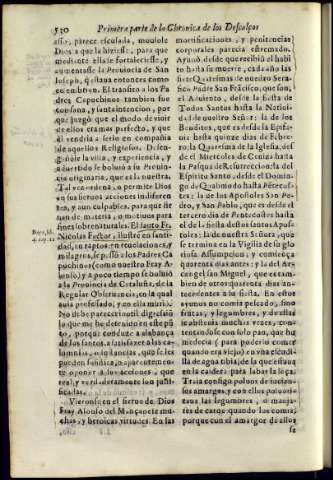 530 Primera parte de la Chronica de los Descalços
assi, parece escusada, mouiole
Dios a que la hiziesse, para que
mediante ella se fortaleciesse, y
aumentasse la Prouincia de San
Joseph, q̃ estaua entonces como
en embrion. El transito a los Pa
dres Capuchinos tambien fue
con sana, y santa intencion, por
que juzgò que el modo de viuir
de ellos era mas perfecto, y que
el vendria a serlo en compañia
de aquellos Religiosos. Desen
gañole la vista, y experiencia, y
aduertido se boluio a su Prouin
cia originaria, que es la nuestra.
Tal vez ordena, o permite Dios
en sus heroes acciones indiferen
tes, y aun culpables, para que sir
uan de materia, o motiuos para
fines sobrenaturales. El santo Fr.
Nicolas Factor, ilustre en santi-
dad, en raptos, en reuelaciones, y
milagros, se passò a los Padres Ca
puchinos (como nuestro Fray Al
onso) y a poco tiempo se boluiò
a la Prouincia de Cataluña, de la
Regular Obseruancia, en la qual
auia professado, y en ella murio.
No debe parecer inutil digressiò
lo que me he detenido en este pũ
to, porque conduze a alabança
de los santos, a satisfazer a las ca-
lumnias, o ignorancias, que se les
pueden fundir, o aparentemen-
te oponer a las acciones, que
real, y verdaderamente son justi-
ficadas.
Vieronse en el sieruo de Dios
Fray Alonso del Mançanete mu-
chas, y heroicas virtudes. En las
mortificaciones, y penitencias
corporales parecia estremado.
Ayunò desde que recibiò el habi
to hasta la muerte, cada año las
siete Quaresmas de nuestro Sera-
fico Padre San Francisco, que son;
el Auiento, desde la fiesta de
Todos Santos hasta la Natiui-
dad de nuestro Señor: la de los
Benditos, que es desde la Epifa-
nia hasta quinze dias de Febre-
ro; la Quaresma de la Iglesia, des
de el Miercoles de Ceniza hasta
la Pasqua de Resurreccion: la del
Espiritu Santo, desde el Domin-
go de Quasimodo hasta Pẽtecos-
tes: la de los Apostoles San Pe-
dro, y San Pablo, que es desde el
tercero dia de Pentecostes hasta
el dia de la fiesta destos dos santos Apos
toles: la de nuestra Señora, que
se termina en la Vigilia de su glo
riosa Assumpcion, y comiença
quarenta dias antes: y la del Ar-
cangel san Miguel, que es tam-
bien de otros quarenta dias an-
tecedentes a su fiesta. En estos
ayunos no comia pescado, sino
frutas, y legumbres, y de ellas
se abstenia muchas vezes, con-
tentandose con solo pan, que hu
medecia (para poderlo comer
quando era viejo) en vna escudi-
lla de agua tibia, de la que estaua
en la caldera para labar la loça.
Traia consigo poluos de accicios
mas amargos, y con ellos poluori-
zaua las legumbres, o manja-
res de carne quando los comia;
porque con el amargor de ellos
se